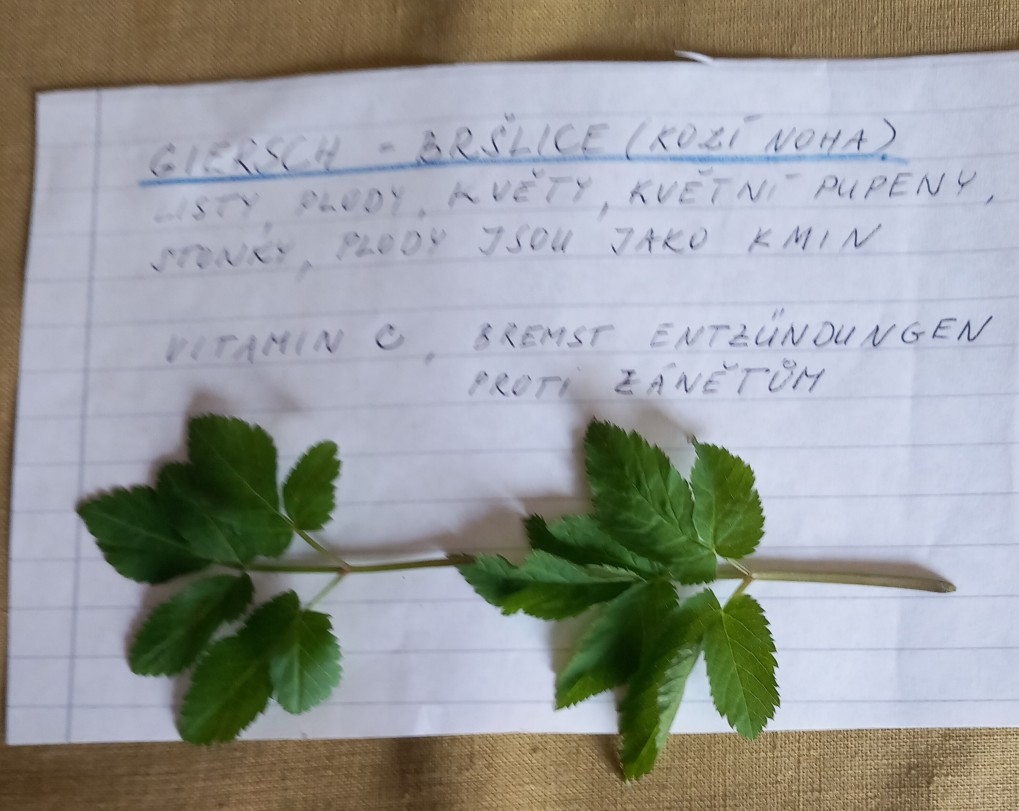 GIERSCH - BRŠLICE (KOZÍ NOHA)
LISTY, PLODY, KVĚTY, KVĚTNÍ PUPENY,
STONKY, PLODY JSOU JAKO KMIN
VITAMIN C, BREMST ENTZÜNDUNGEN
PROTI ZÁNĚTŮM